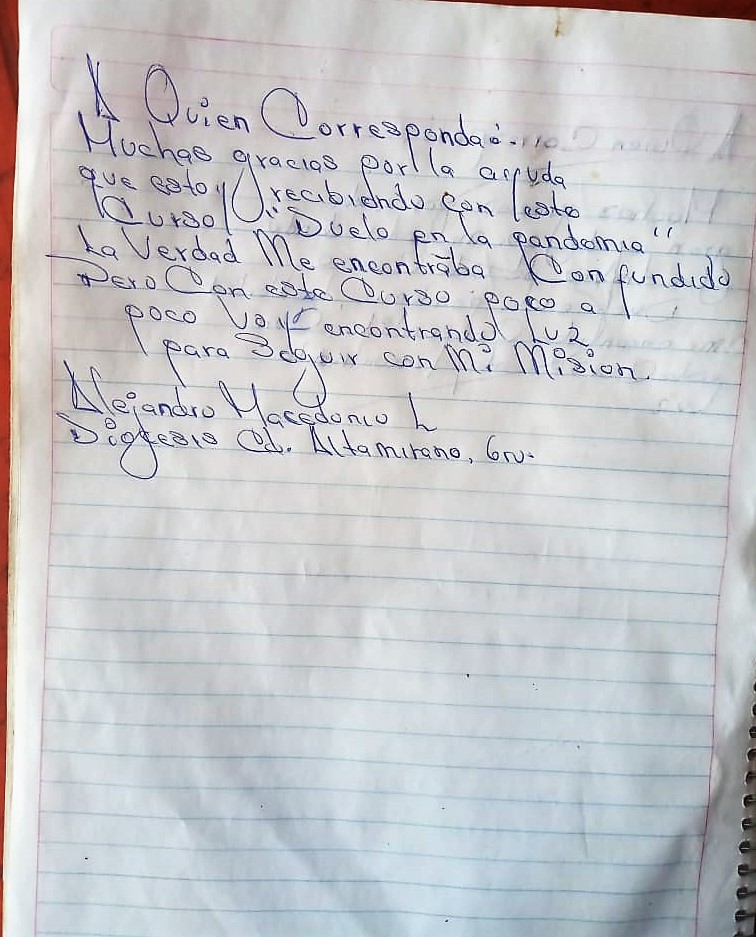 A Quien Corresponda:.
Muchas gracias por la ayuda
que estoy recibiendo con este
Curso ". Duelo en la pandemia"
La Verdad Me encontraba Confundido
Pero Con este Curso poco a
poco voy encontrando Luz
para Seguir con Mi Mision.
Alejandro Macedonio L
Diocesis Cd. Altamirano, Gro.